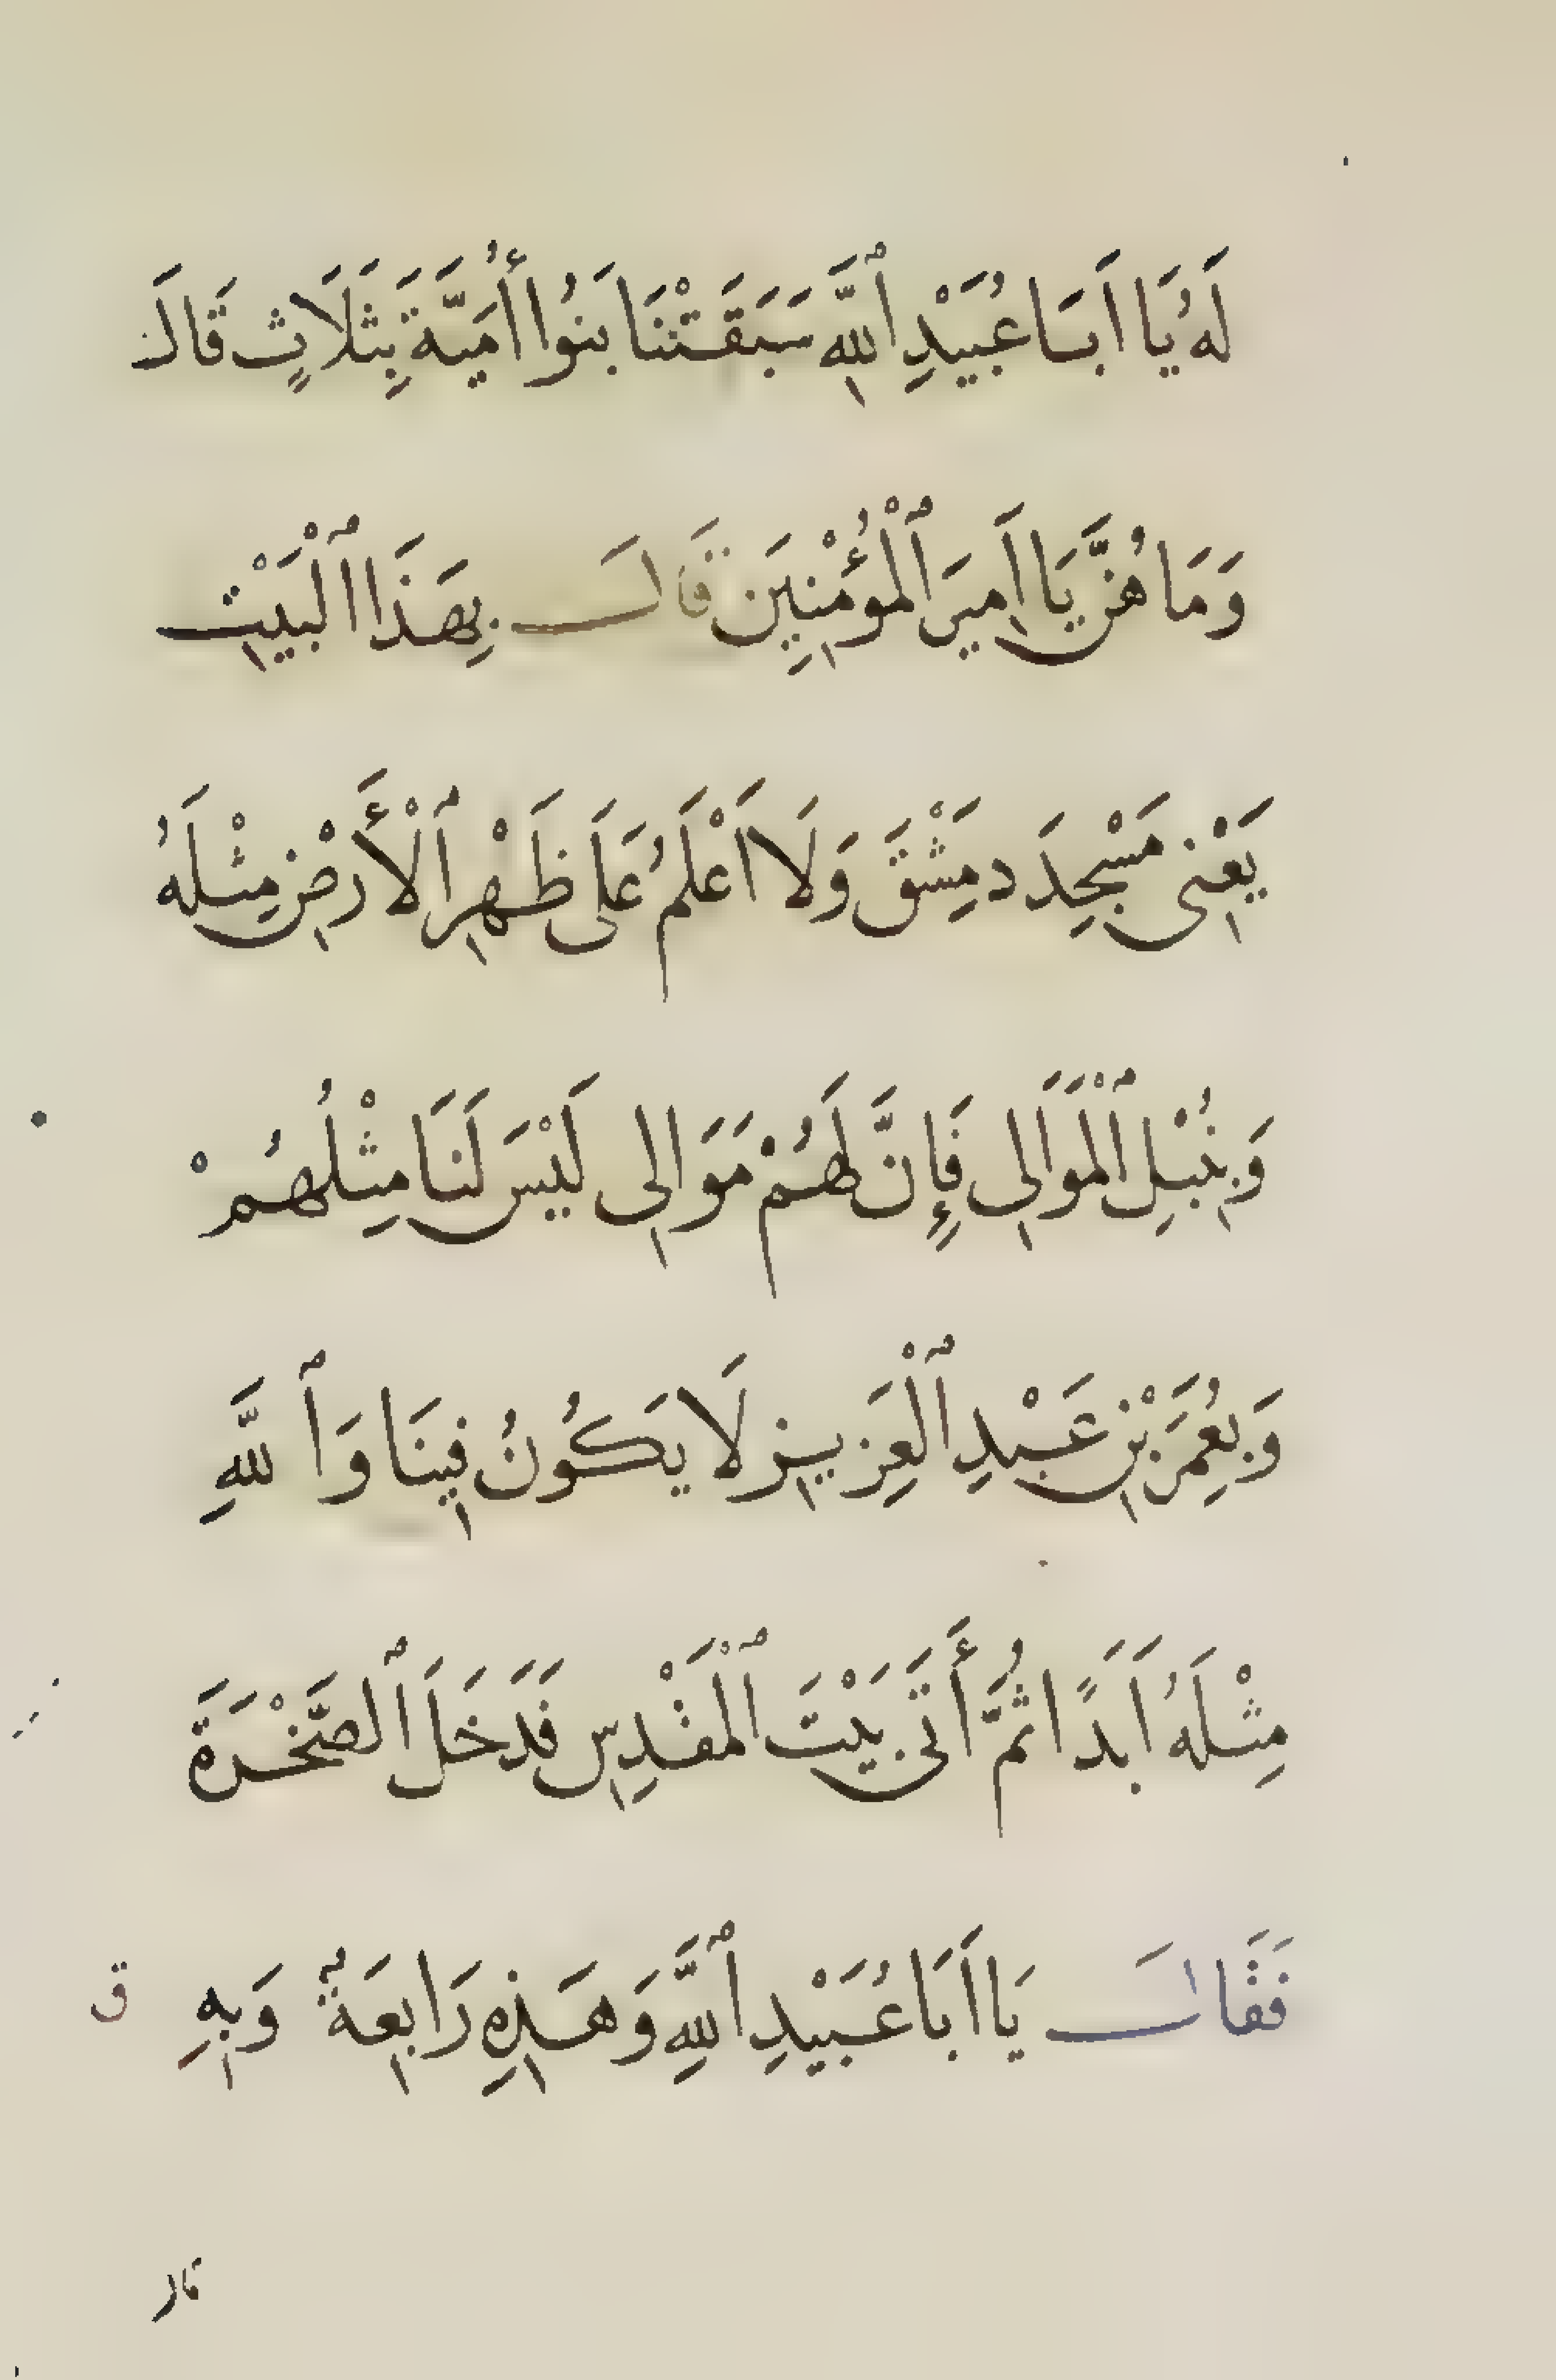 لَهُ يَا اَبَا عُبَيْدِ ٱللَّهِ سَبَقَتْنَا بَنُوا أُمَيَّةَ بِثَلَاثٍ قَالَ
وَمَا هُنَّ يَا اَمِيرَ ٱلْمُؤْمِنِينَ قَالَ بِهَذَا ٱلْبَيْتِ
يَعْنِى مَسْجِدَ دِمَشْقَ وَلَا اَعْلَمُ عَلَى ظَهْرِ ٱلْأَرْضِ مِثْلَهُ
وَبِنُبْلِ ٱلْمَوَالِى فَإِنَّ لَهُمْ مَوَالِى لَيْسَ لَنَا مِثْلُهُمْ
وَبِعُمَرَ بْنِ عَبْدِ ٱلْعَزِيزِ لَا يَكُونُ فِينَا وَٱللَّهِ
مِثْلَهُ اَبَدًا ثُمَّ أَتَى بَيْتَ ٱلْمَقْدِسِ فَدَخَلَ ٱلصَّخْرَةَ
فَقَالَ يَا اَبَا عُبَيْدِ ٱللَّهِ وَهَذِهِ رَابِعَةٌ وَبِهِ ق
قال